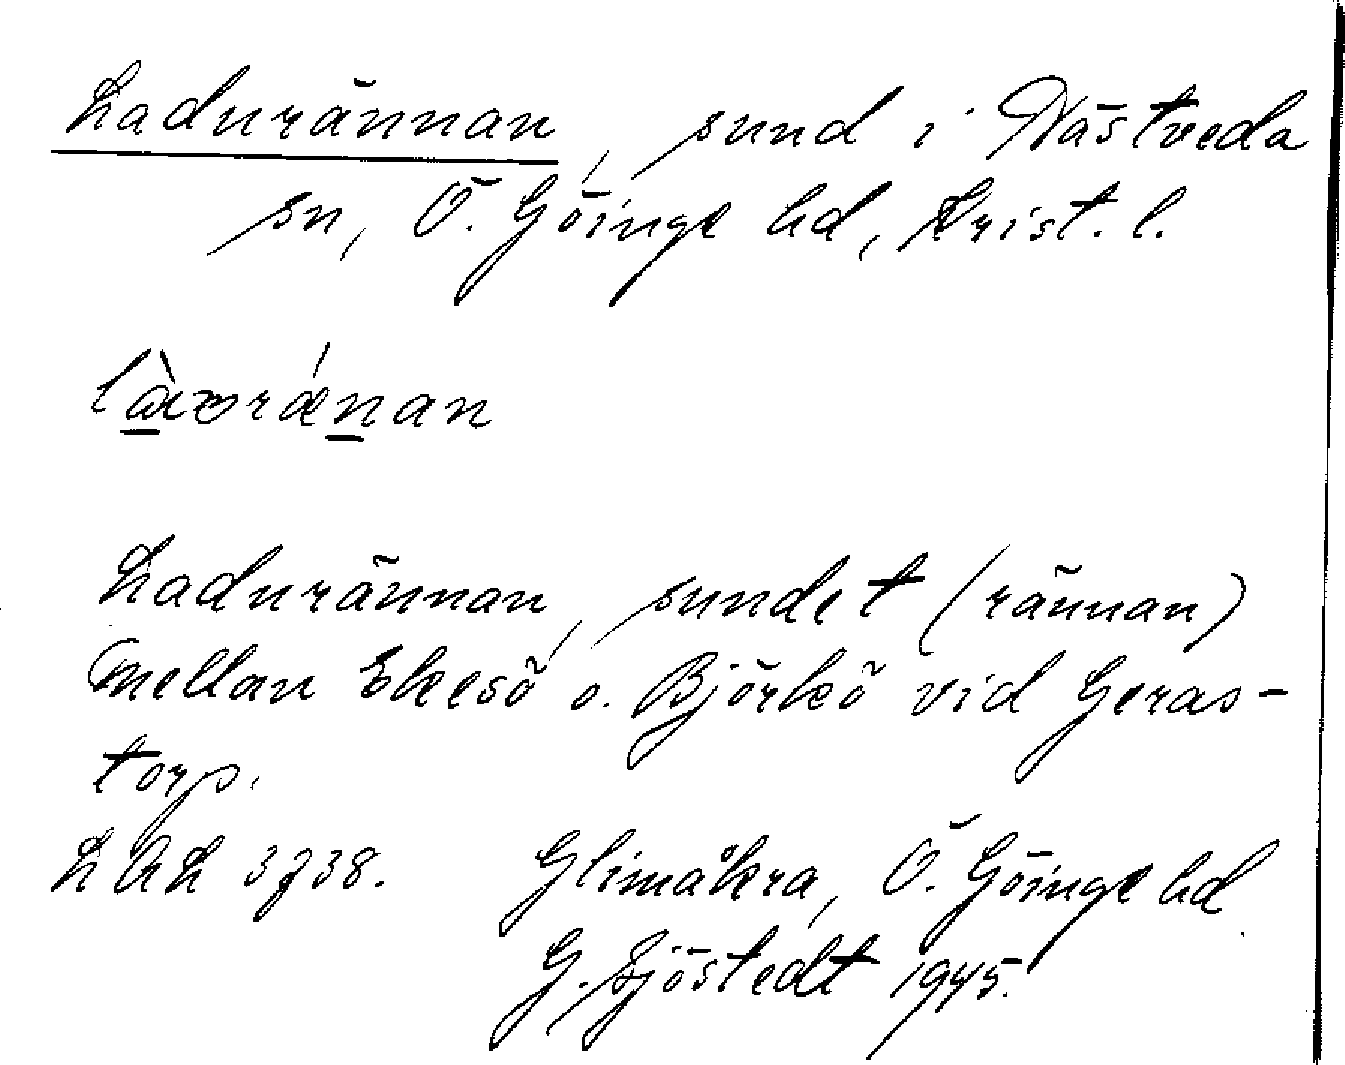 Ladurännan, sund i Nästveda
sn, Ö. Göinge hd, Krist. l.
Ladurännan, sundet (rännan)
mellan Ekesö o. Björkö vid Geras-
torp.
LAL 3738. Glimåkra, Ö. Göinge hd
G. Sjöstedt 1945.